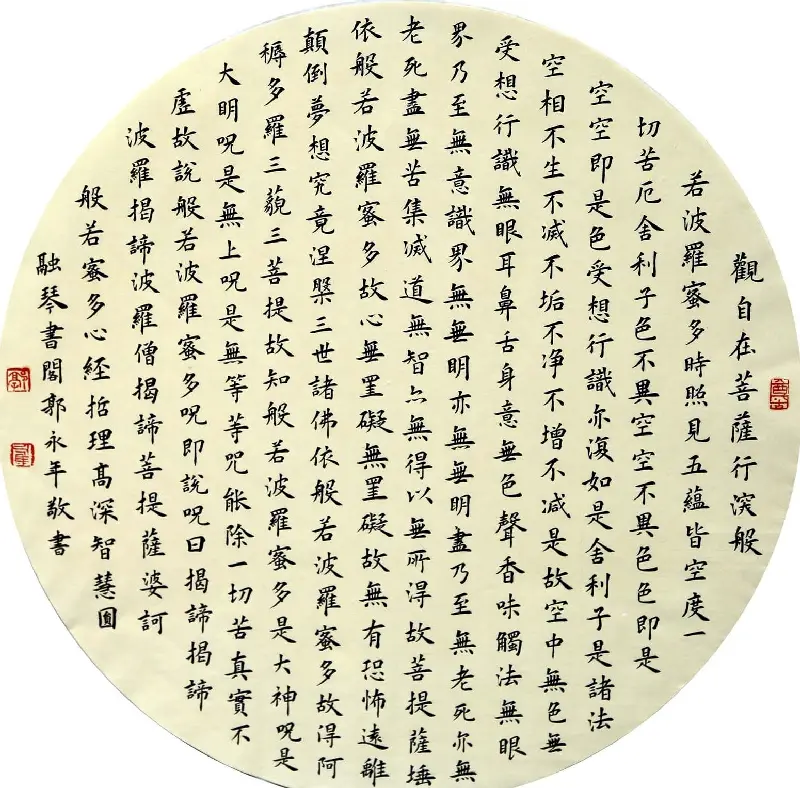 觀自在菩薩行深般
若波羅蜜多時照見五蘊皆空度一
切苦厄舍利子色不異空空不異色色即是
空空即是色受想行識亦復如是舍利子是諸法
空相不生不滅不垢不净不增不减是故空中無色無
受想行識無眼耳鼻舌身意無色聲香味觸法無眼
界乃至無意識界無無明亦無無明盡乃至無老死亦無
老死盡無苦集滅道無智亦無得以無所得故菩提薩埵
依般若波羅蜜多故心無罣礙無罣礙故無有恐怖遠離
顛倒夢想究竟涅槃三世諸佛依般若波羅蜜多故得阿
耨多羅三藐三菩提故知般若波羅蜜多是大神呪是
大明呪是無上呪是無等等咒能除一切苦真實不
虛故説般若波羅蜜多呪即説呪曰揭諦揭諦
波羅揭諦波羅僧揭諦菩提薩婆訶
般若蜜多心經哲理高深智慧圓
融琴書閣郭永年敬書